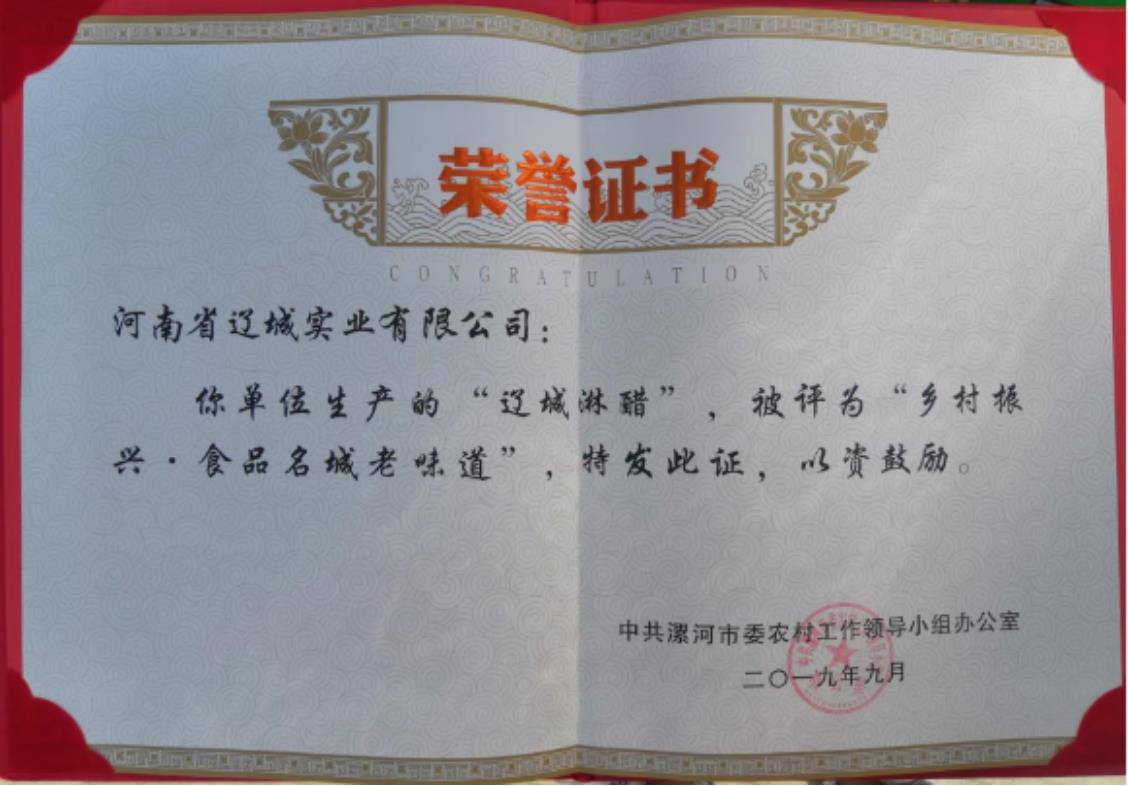 荣誉证书
CONGRATULATION
河南省辽城实业有限公司：
你单位生产的“辽城淋醋”，被评为“乡村振
兴·食品名城老味道”，特发此证，以资鼓励。
中共漯河市委农村工作领导小组办公室
二〇一九年九月